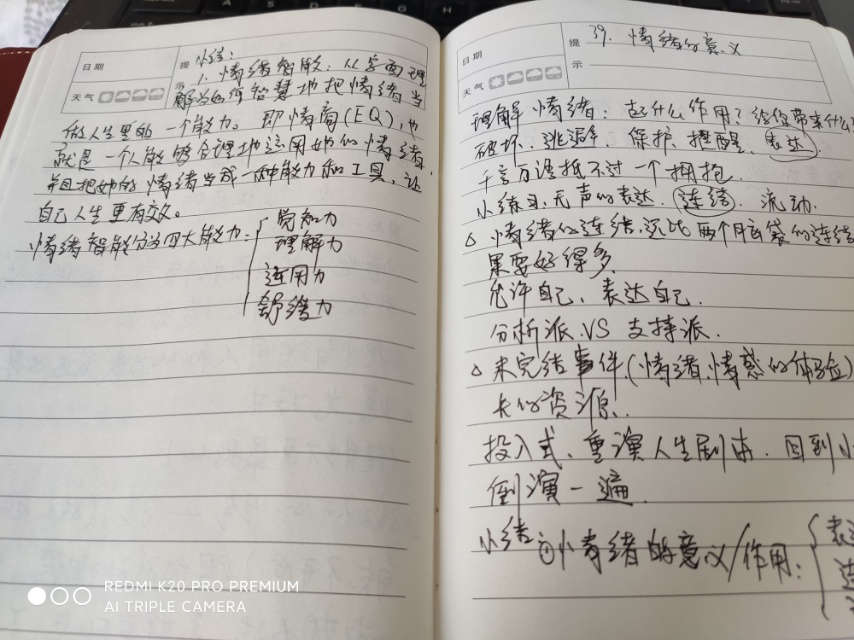 日期
提示
天气
小结:
1. 情绪智能: 从全面理
解当如何智慧地把情绪当
做人生里的一个能力。即情商(EQ),也
就是一个人能够合理地运用她的情绪.
并且把她的情绪当成一种能力和工具,让
自己人生更有效。
情绪智能分为四大能力:
觉知力
理解力
运用力
舒缓力
日期
提示
天气
39. 情绪的意义
理解情绪: 起什么作用? 给你带来什么
破坏、逃避、保护、提醒、表达.
千言万语抵不过一个拥抱.
小练习,无声的表达. 连结. 流动.
△ 情绪的连结,远比两个脑袋的连结
果要好得多.
允许自己、表达自己.
分析派 VS 支持派.
△ 未完结事件.(情绪、情感的体验)
长的资源.
投入式、重演人生剧本. 回到小
倒演一遍.
小结 ①情绪的意义/作用:
表达
连
REDMI K20 PRO PREMIUM
AI TRIPLE CAMERA